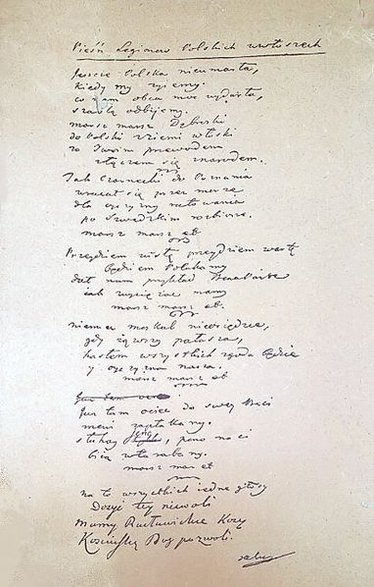 Pieśń Legionów Polskich we Włoszech
Jeszcze Polska nieumarła,
kiedy my żyjemy.
co nam obca moc wydarła,
szablą odbijemy.
marsz marsz Dąbrski
do Polski z ziemi włoski
za Twoim przewodem
złączem się z narodem.
Jak Czarnecki do Poznania
wracał się przez morze
dla ojczyzny ratowania
po Szwedzkim rozbiorze.
marsz marsz etc
Przejdziem Wisłę przejdziem Wartę
będziem Polakamy
dał nam przykład Bonaparte
jak zwyciężać mamy
marsz marsz etc.
Niemiec moskal nieosiędzie,
gdy jąwszy pałasza,
hasłem wszystkich zgoda będzie
y ojczyzna nasza.
marsz marsz etc
Już tam ociec do swej Basi
mówi zapłakany.
słuchaj jeno, pono nasi
biją w tarabany.
marsz marsz etc
na to wszystkich iedne głosy
Dosyć tey niewoli
Mamy Racławickie Kosy
Kościuszkę Bóg pozwoli.